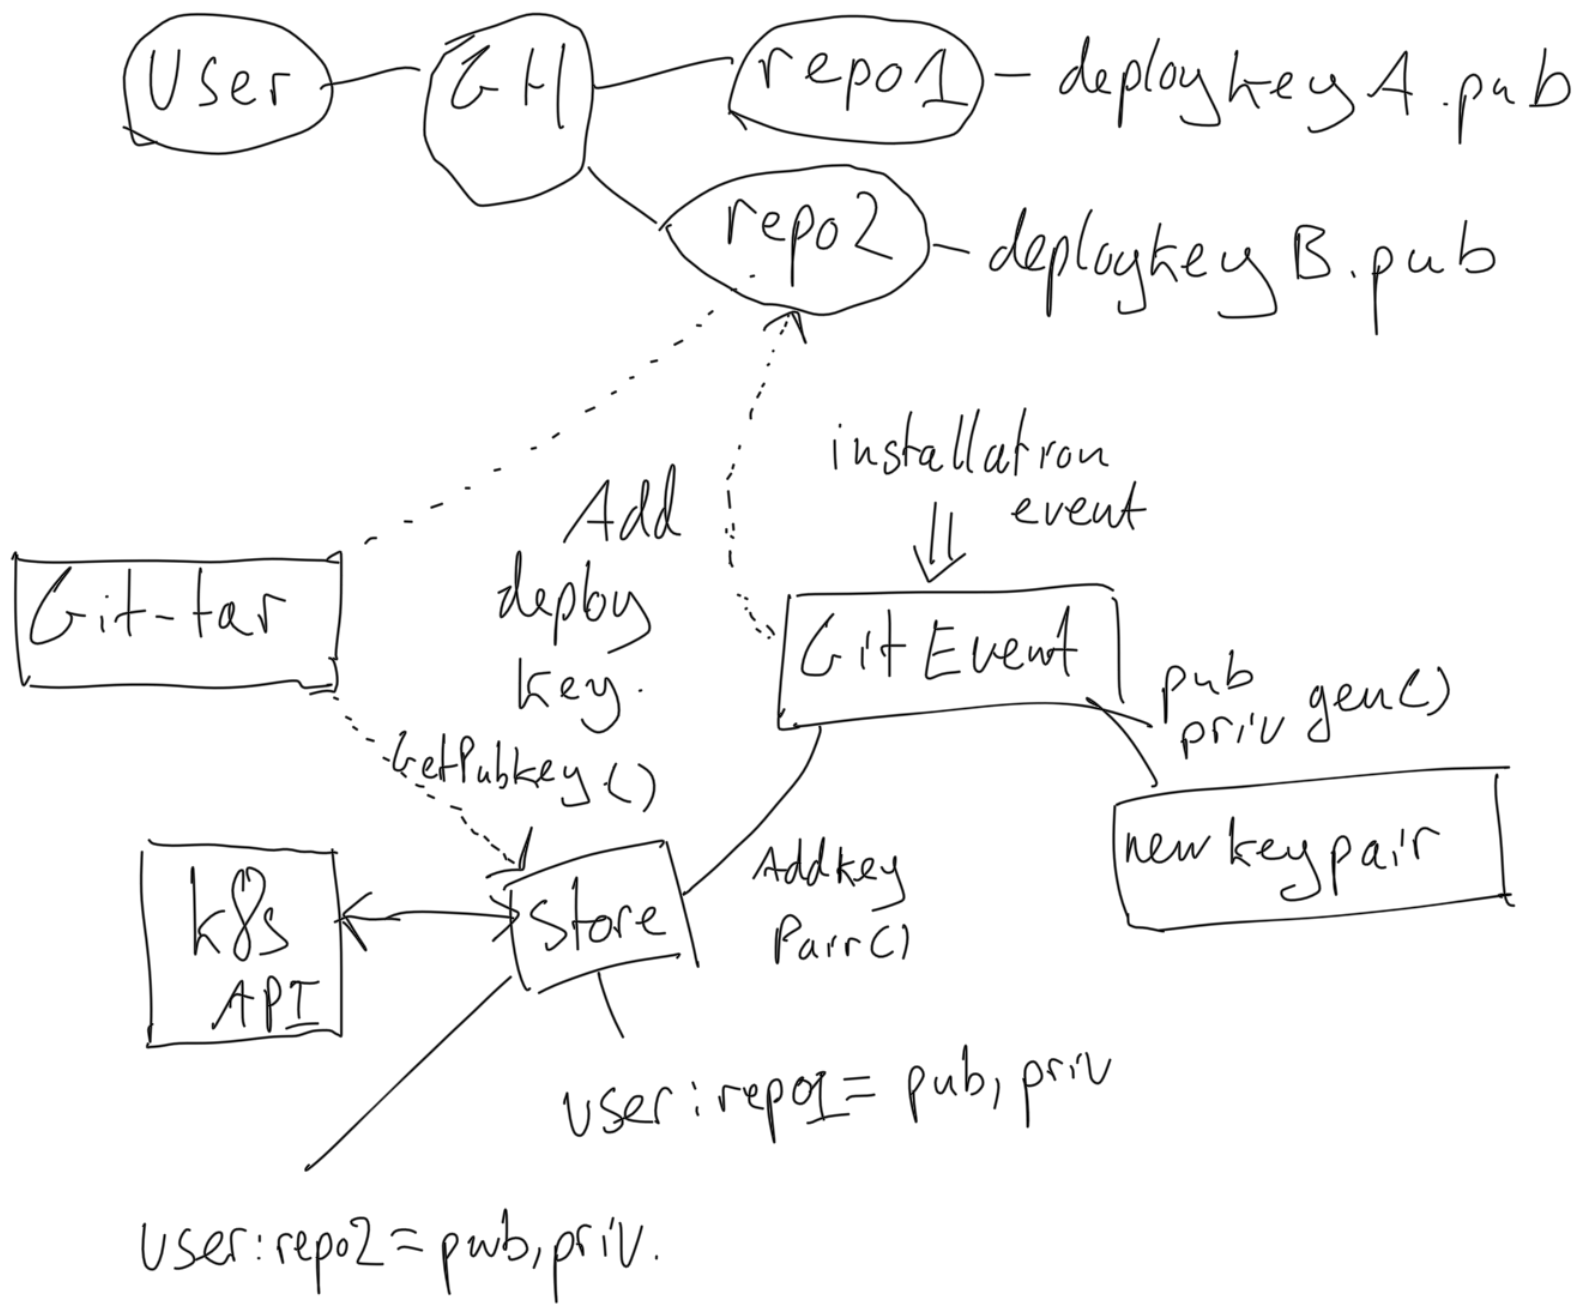 User
GH
repo1
deploykey A.pub
repo2
deploykey B.pub
installation
event
Add
deploy
key.
Git-tar
Git Event
pub
priv gen()
GetPubkey()
new keypair
k8s
API
Store
Addkey
Pair()
user:repo1= pub, priv
user:repo2 = pub,priv.